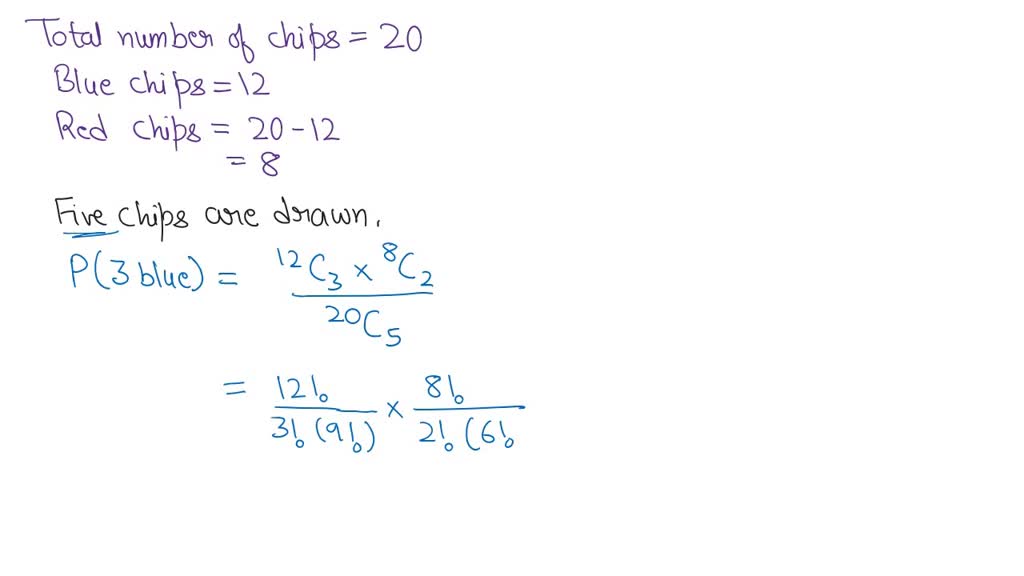 Total number of chips = 20
Blue chips = 12
Red chips = 20 - 12
= 8
Five chips are drawn.
P(3 blue) = ¹²C₃ × ⁸C₂
²⁰C₅
= 12! × 8!
3! (9!) 2! (6!